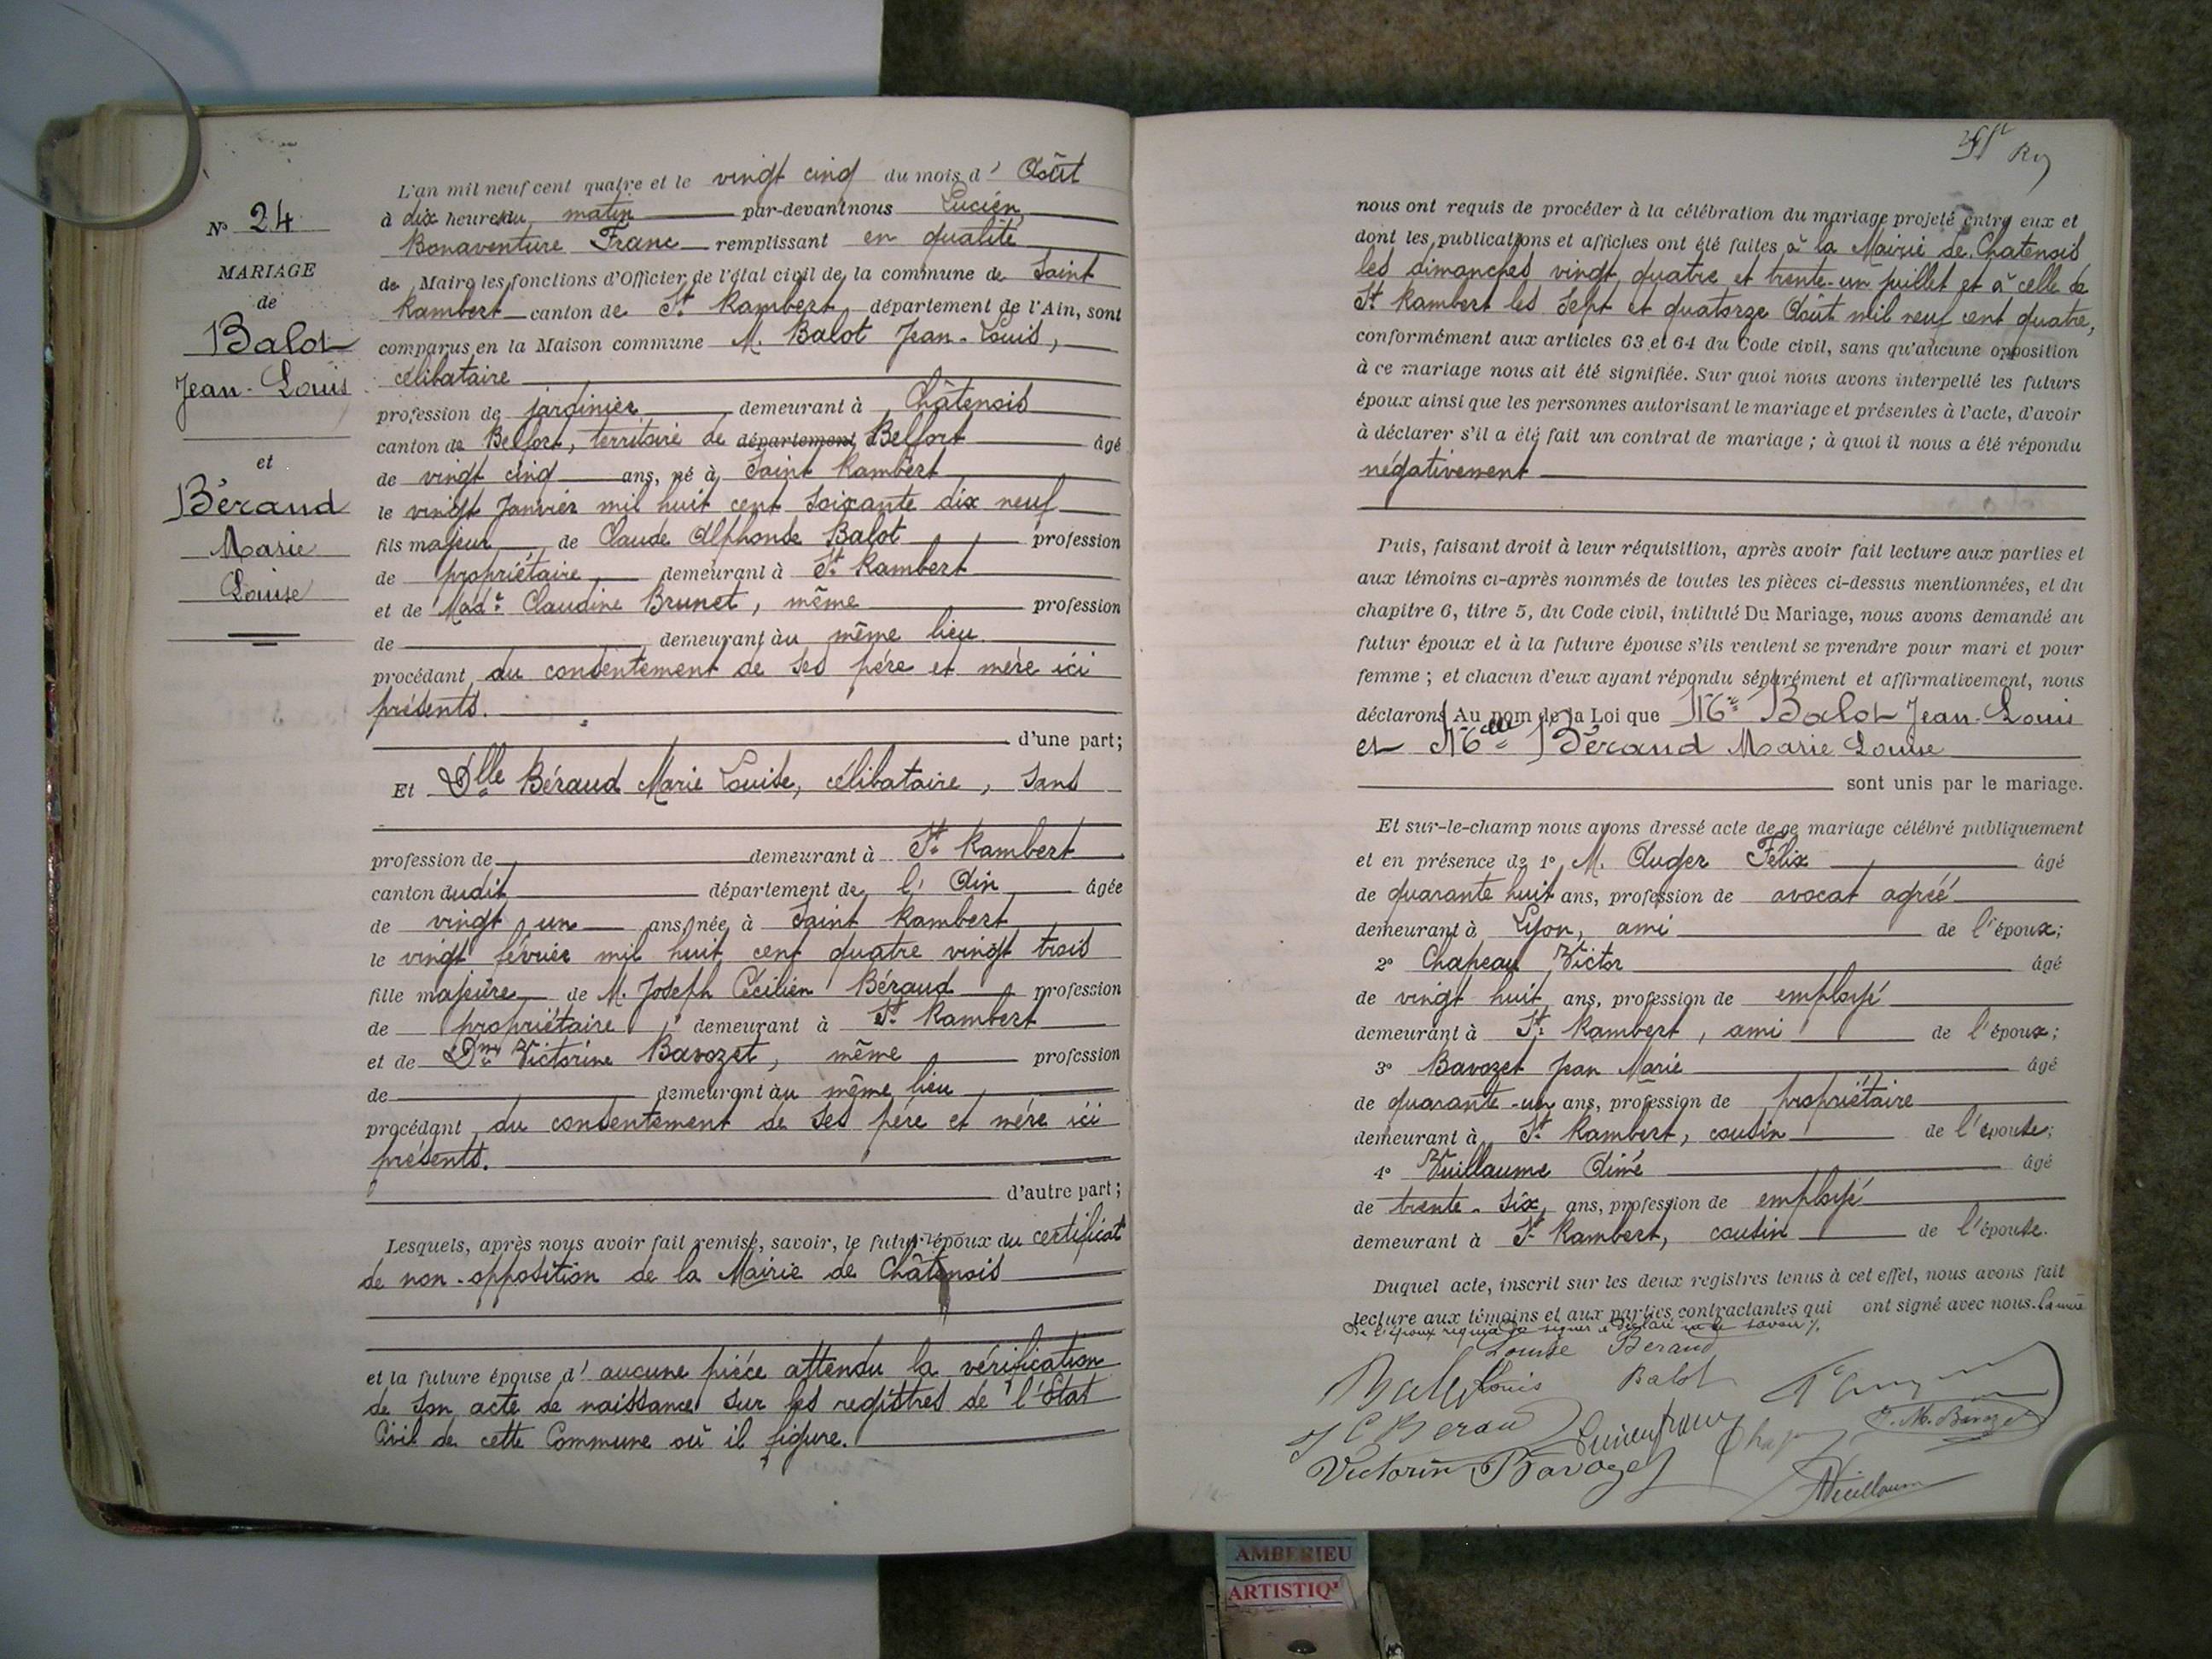 N° 24
MARIAGE
de
Balot
Jean-Louis
et
Béraud
Marie
Louise
L'an mil neuf cent quatre et le vingt cinq du mois d' Août
à dix heures du matin par-devant nous Lucien
Bonaventure Franc remplissant en qualité
de Maire les fonctions d'Officier de l'état civil de la commune de Saint
Rambert canton de St Rambert département de l'Ain, sont
comparus en la Maison commune M. Balot Jean-Louis,
célibataire
profession de jardinier demeurant à Châtenois
canton de Belfort, territoire de département Belfort âgé
de vingt cinq ans, né à Saint Rambert
le vingt Janvier mil huit cent soixante dix neuf
fils majeur de Claude Alphonse Balot profession
de propriétaire, demeurant à St Rambert
et de Made Claudine Brunet, même profession
de demeurant au même lieu
procédant du consentement de ses père et mère ici
présents.
d'une part;
Et Dlle Béraud Marie Louise, célibataire, sans
profession de demeurant à St Rambert
canton dudit département de l'Ain âgée
de vingt un ans, née à Saint Rambert
le vingt février mil huit cent quatre vingt trois
fille majeure de M. Joseph Cécilien Béraud profession
de propriétaire, demeurant à St Rambert
et de Dme Victorine Bavozet, même profession
de demeurant au même lieu
procédant du consentement de ses père et mère ici
présents.
d'autre part;
Lesquels, après nous avoir fait remise, savoir, le futur époux du certificat
de non-opposition de la Mairie de Châtenois
et la future épouse d'aucune pièce attendu la vérification
de son acte de naissance sur les registres de l'Etat
Civil de cette Commune où il figure.
nous ont requis de procéder à la célébration du mariage projeté entre eux et
dont les publications et affiches ont été faites à la Mairie de Chatenois
les dimanches vingt quatre et trente-un juillet et à celle de
St Rambert les sept et quatorze Août mil neuf cent quatre,
conformément aux articles 63 et 64 du Code civil, sans qu'aucune opposition
à ce mariage nous ait été signifiée. Sur quoi nous avons interpellé les futurs
époux ainsi que les personnes autorisant le mariage et présentes à l'acte, d'avoir
à déclarer s'il a été fait un contrat de mariage; à quoi il nous a été répondu
négativement
Puis, faisant droit à leur réquisition, après avoir fait lecture aux parties et
aux témoins ci-après nommés de toutes les pièces ci-dessus mentionnées, et du
chapitre 6, titre 5, du Code civil, intitulé Du Mariage, nous avons demandé au
futur époux et à la future épouse s'ils veulent se prendre pour mari et pour
femme; et chacun d'eux ayant répondu séparément et affirmativement, nous
déclarons Au nom de la Loi que Mr Balot Jean-Louis
et Melle Béraud Marie Louise
sont unis par le mariage.
Et sur-le-champ nous avons dressé acte de ce mariage célébré publiquement
et en présence de 1° M. Auger Félix âgé
de quarante huit ans, profession de avocat agréé
demeurant à Lyon, ami de l'époux;
2° Chapeau Victor âgé
de vingt huit ans, profession de employé
demeurant à St Rambert, ami de l'époux;
3° Bavozet Jean Marie âgé
de quarante-un ans, profession de propriétaire
demeurant à St Rambert, cousin de l'épouse;
4° Vuillaume Aimé âgé
de trente-six ans, profession de employé
demeurant à St Rambert, cousin de l'épouse.
Duquel acte, inscrit sur les deux registres tenus à cet effet, nous avons fait
lecture aux témoins et aux parties contractantes qui ont signé avec nous. La mère
de l'époux requise de signer a déclaré ne le savoir
Louise Beraud
Balot Louis Balot
J C Beraud Lucien Franc J. M. Bavozet
Victorine Bavozet Vuillaume
AMBERIEU
ARTISTIQ